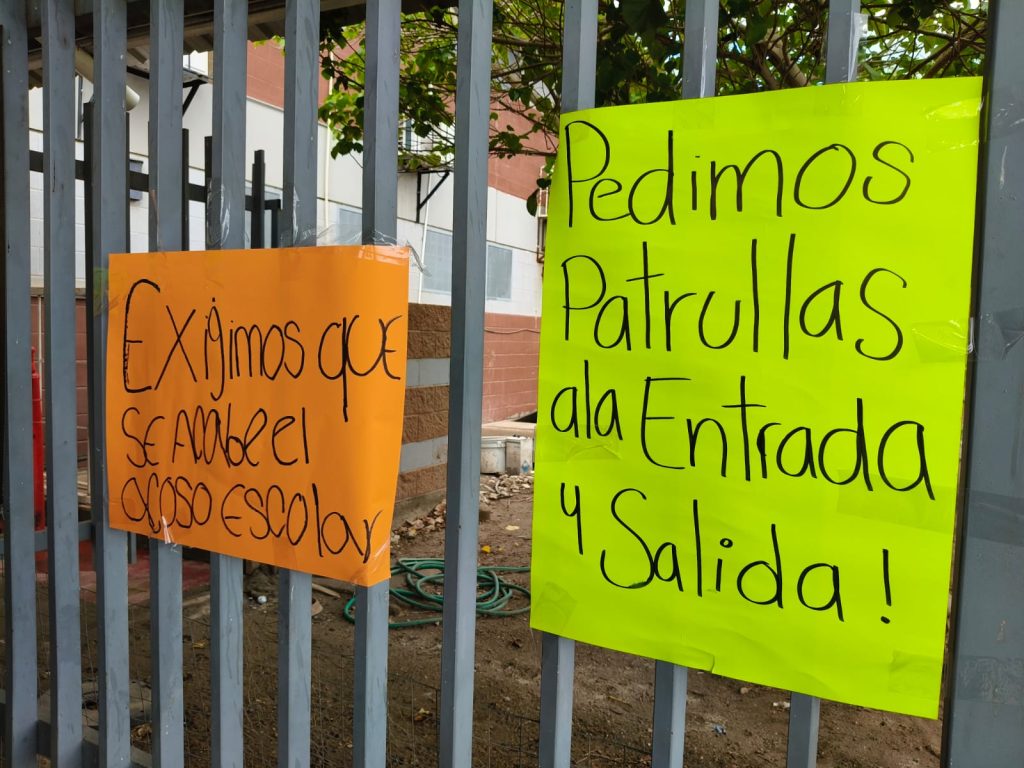 Exijimos que
se Acabe el
acoso Escolar
Pedimos
Patrullas
ala Entrada
y Salida!